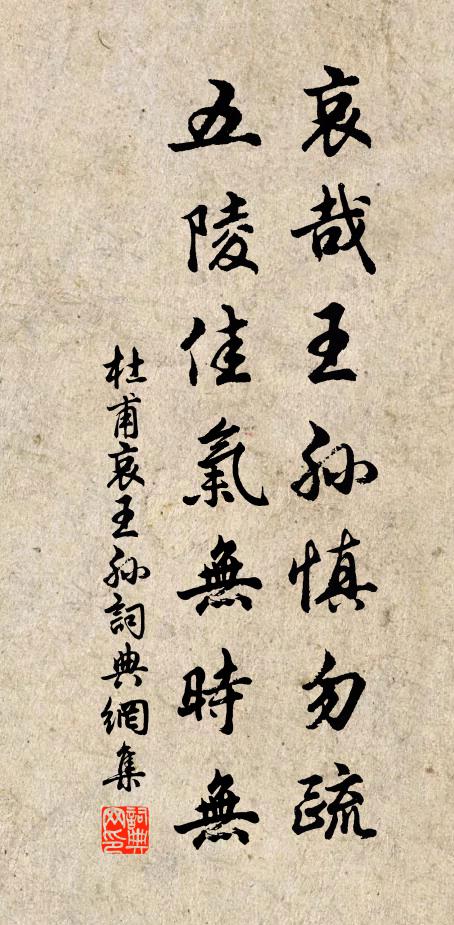 哀哉王孫慎勿疏
五陵佳氣無時無
杜甫哀王孫詞典網集
詞典网印